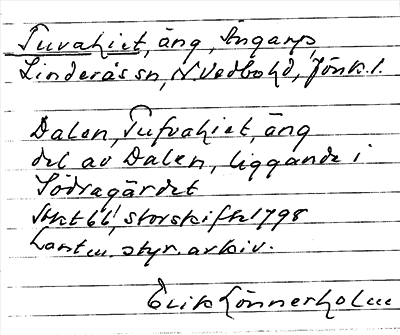 Tuvahiet, äng, Ängarp,
Linderås sn, N Vedbo hd, Jönk. l.
Dalen, Tufvahiet, äng
del av Dalen, liggande i
Södragärdet
Akt 66, storskifte 1798
Lantm. styr. arkiv.
Erik Lönnerholm